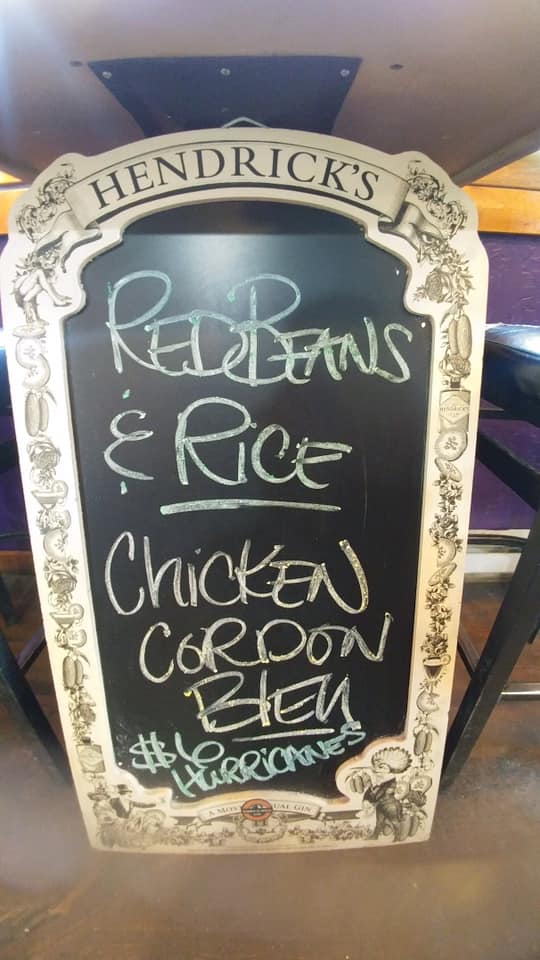 HENDRICK'S
RED BEANS
& RICE
CHICKEN
CORDON
BLEU
$6
HURRICANES
A MOST UNUSUAL GIN